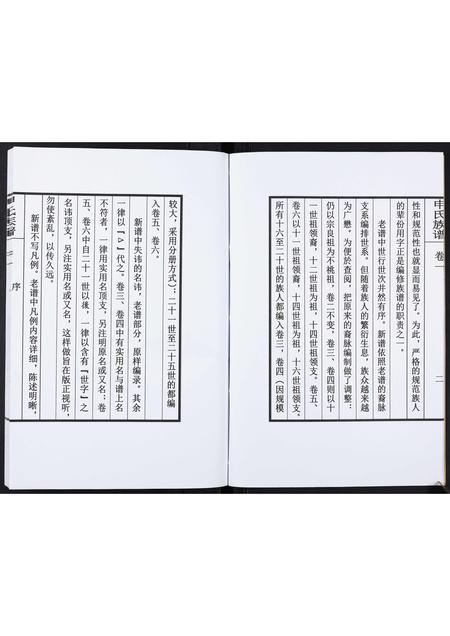 申氏族谱 卷一 二
性和规范性也就显而易见了。为此，严格的规范族人
的辈份用字正是编修族谱的职责之一。
老谱中世行世次井然有序。新谱依照老谱的裔脉
支系编排世系。但随着族人的繁衍生息，族众越来越
为广懋。为便於查阅，把原来的裔脉编制做了调整：
仍以宗良祖为不桃祖，卷二不变，卷三、卷四则以十
一世祖领裔，十二世祖为祖，十四世祖领支。卷五、
卷六以十一世祖领裔，十四世祖为祖，十六世祖领支。
所有十六至二十世的族人都编入卷三、卷四（因规模
较大，采用分册方式）；二十一世至二十五世的都编
入卷五、卷六。
新谱中失讳的名讳，老谱部分，原样编录。其余
一律以『△』代之。卷三、卷四中有实用名与谱上名
不符者，一律用实用名顶支，另注明原名或又名；卷
五、卷六中自二十一世以後，一律以含有『世字』之
名讳顶支，另注实用名或又名，这样做旨在版正视听，
勿使紊乱，以传久远。
新谱不写凡例。老谱中凡例内容详细，陈述明晰，
序